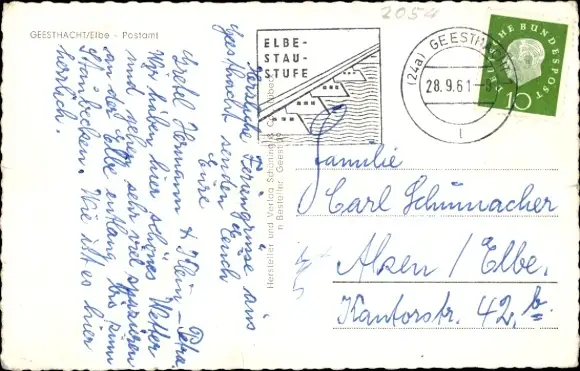 2054
GEESTHACHT/Elbe - Postamt
ELBE-
STAU-
STUFE
(24a) GEESTHACHT
28.9.61-
l
DEUTSCHE BUNDESPOST
10
Herzliche Feriengrüsse aus
Geesthacht senden Euch
Eure
Hermann & Klein-Petra.
Wir haben hier schönes Wetter
und gehen sehr viel spazieren
an der Elbe entlang bis zum
Wie ist es hier
herrlich.
Hersteller und Verlag Schöning & Co., Lübeck
Familie
Carl Schumacher
Alsen / Elbe.
Kantorstr. 42, b.